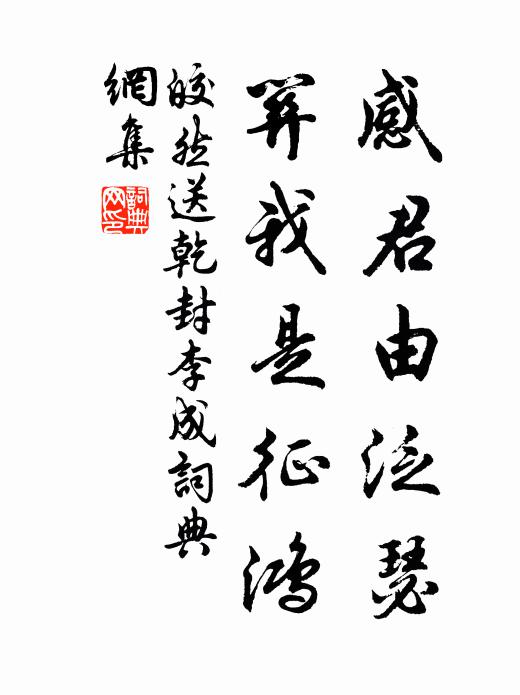 感君由泛瑟
關我是征鴻
皎然送乾封李成詞典
網集
詞典
网印